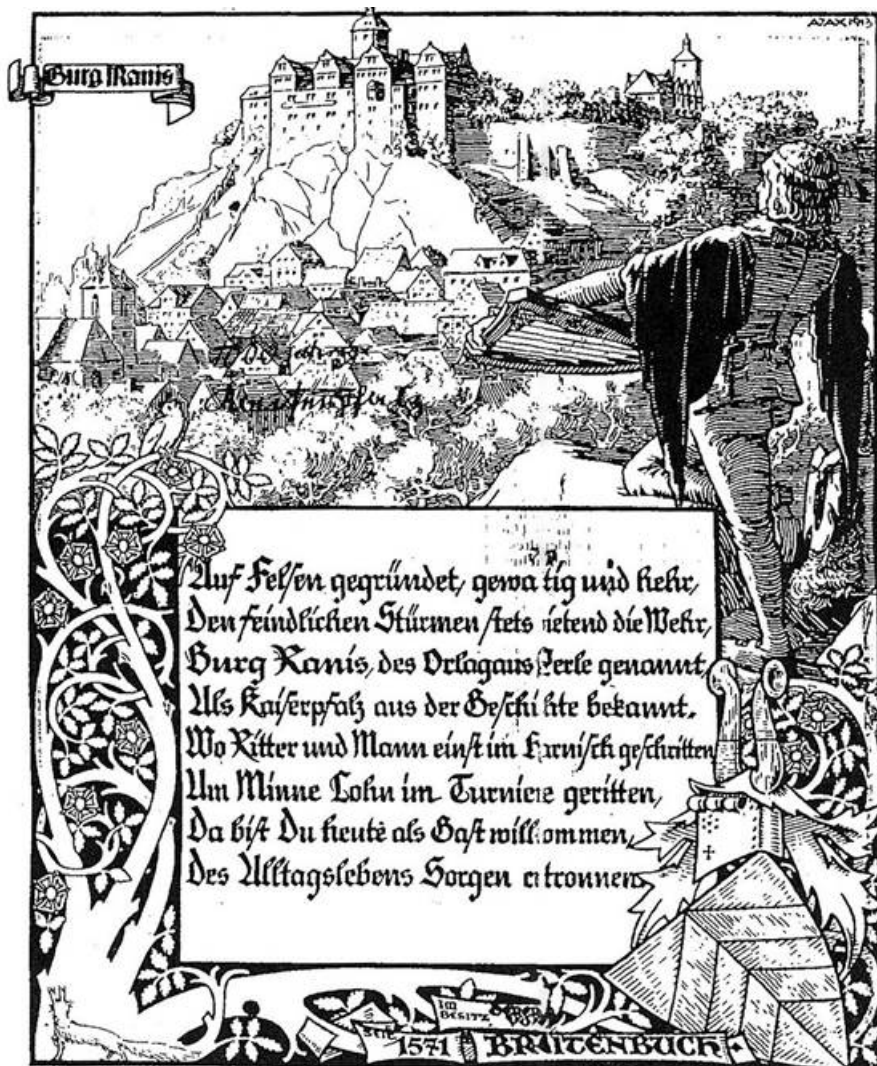 AJAX 1913
Burg Ranis
Auf Felsen gegründet, gewaltig und hehr,
Den feindlichen Stürmen stets bietend die Wehr,
Burg Ranis, des Orlagaus Perle genannt,
Als Kaiserpfalz aus der Geschichte bekannt.
Wo Ritter und Mann einst im Harnisch geschritten
Um Minne Lohn im Turniere geritten,
Da bist Du heute als Gast willkommen,
Des Alltagslebens Sorgen entronnen.
SEIT 1571 IM BESITZ DERER VON BREITENBUCH